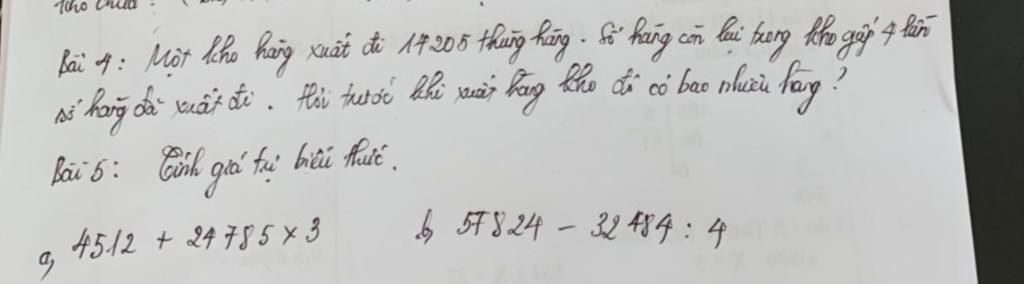 kho chưa
Bài 4: Một kho hàng xuất đi 14205 thùng hàng. Số hàng còn lại trong kho gấp 4 lần
số hàng đã xuất đi. Hỏi trước khi xuất hàng kho đó có bao nhiêu hàng?
Bài 5: Tính giá trị biểu thức.
a, 4512 + 24785 x 3 b, 57824 - 32484 : 4